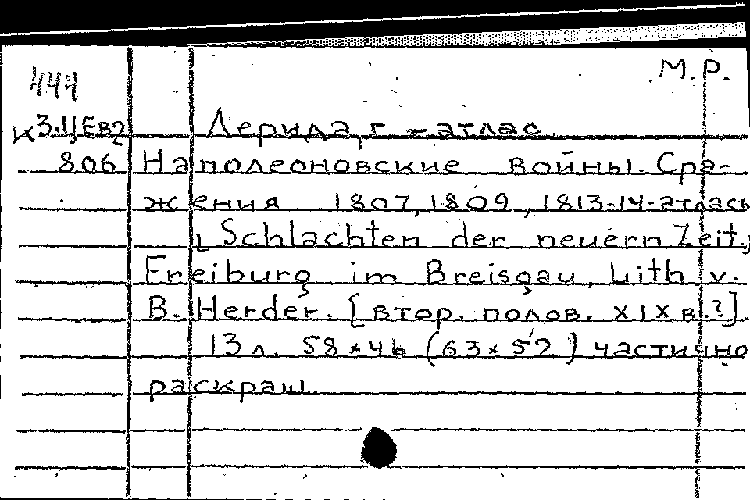 М.Р.
441
К3.ЦЕв2
Лерида, г. - атлас
806 Наполеоновские войны. Сра-
жения 1807, 1809, 1813-14-атласы
[Schlachten der neuern Zeit.]
Freiburg im Breisgau, Lith v.
B. Herder. [втор. полов. XIX в.?]
13 л. 58×46 (63×52) частично
раскраш.